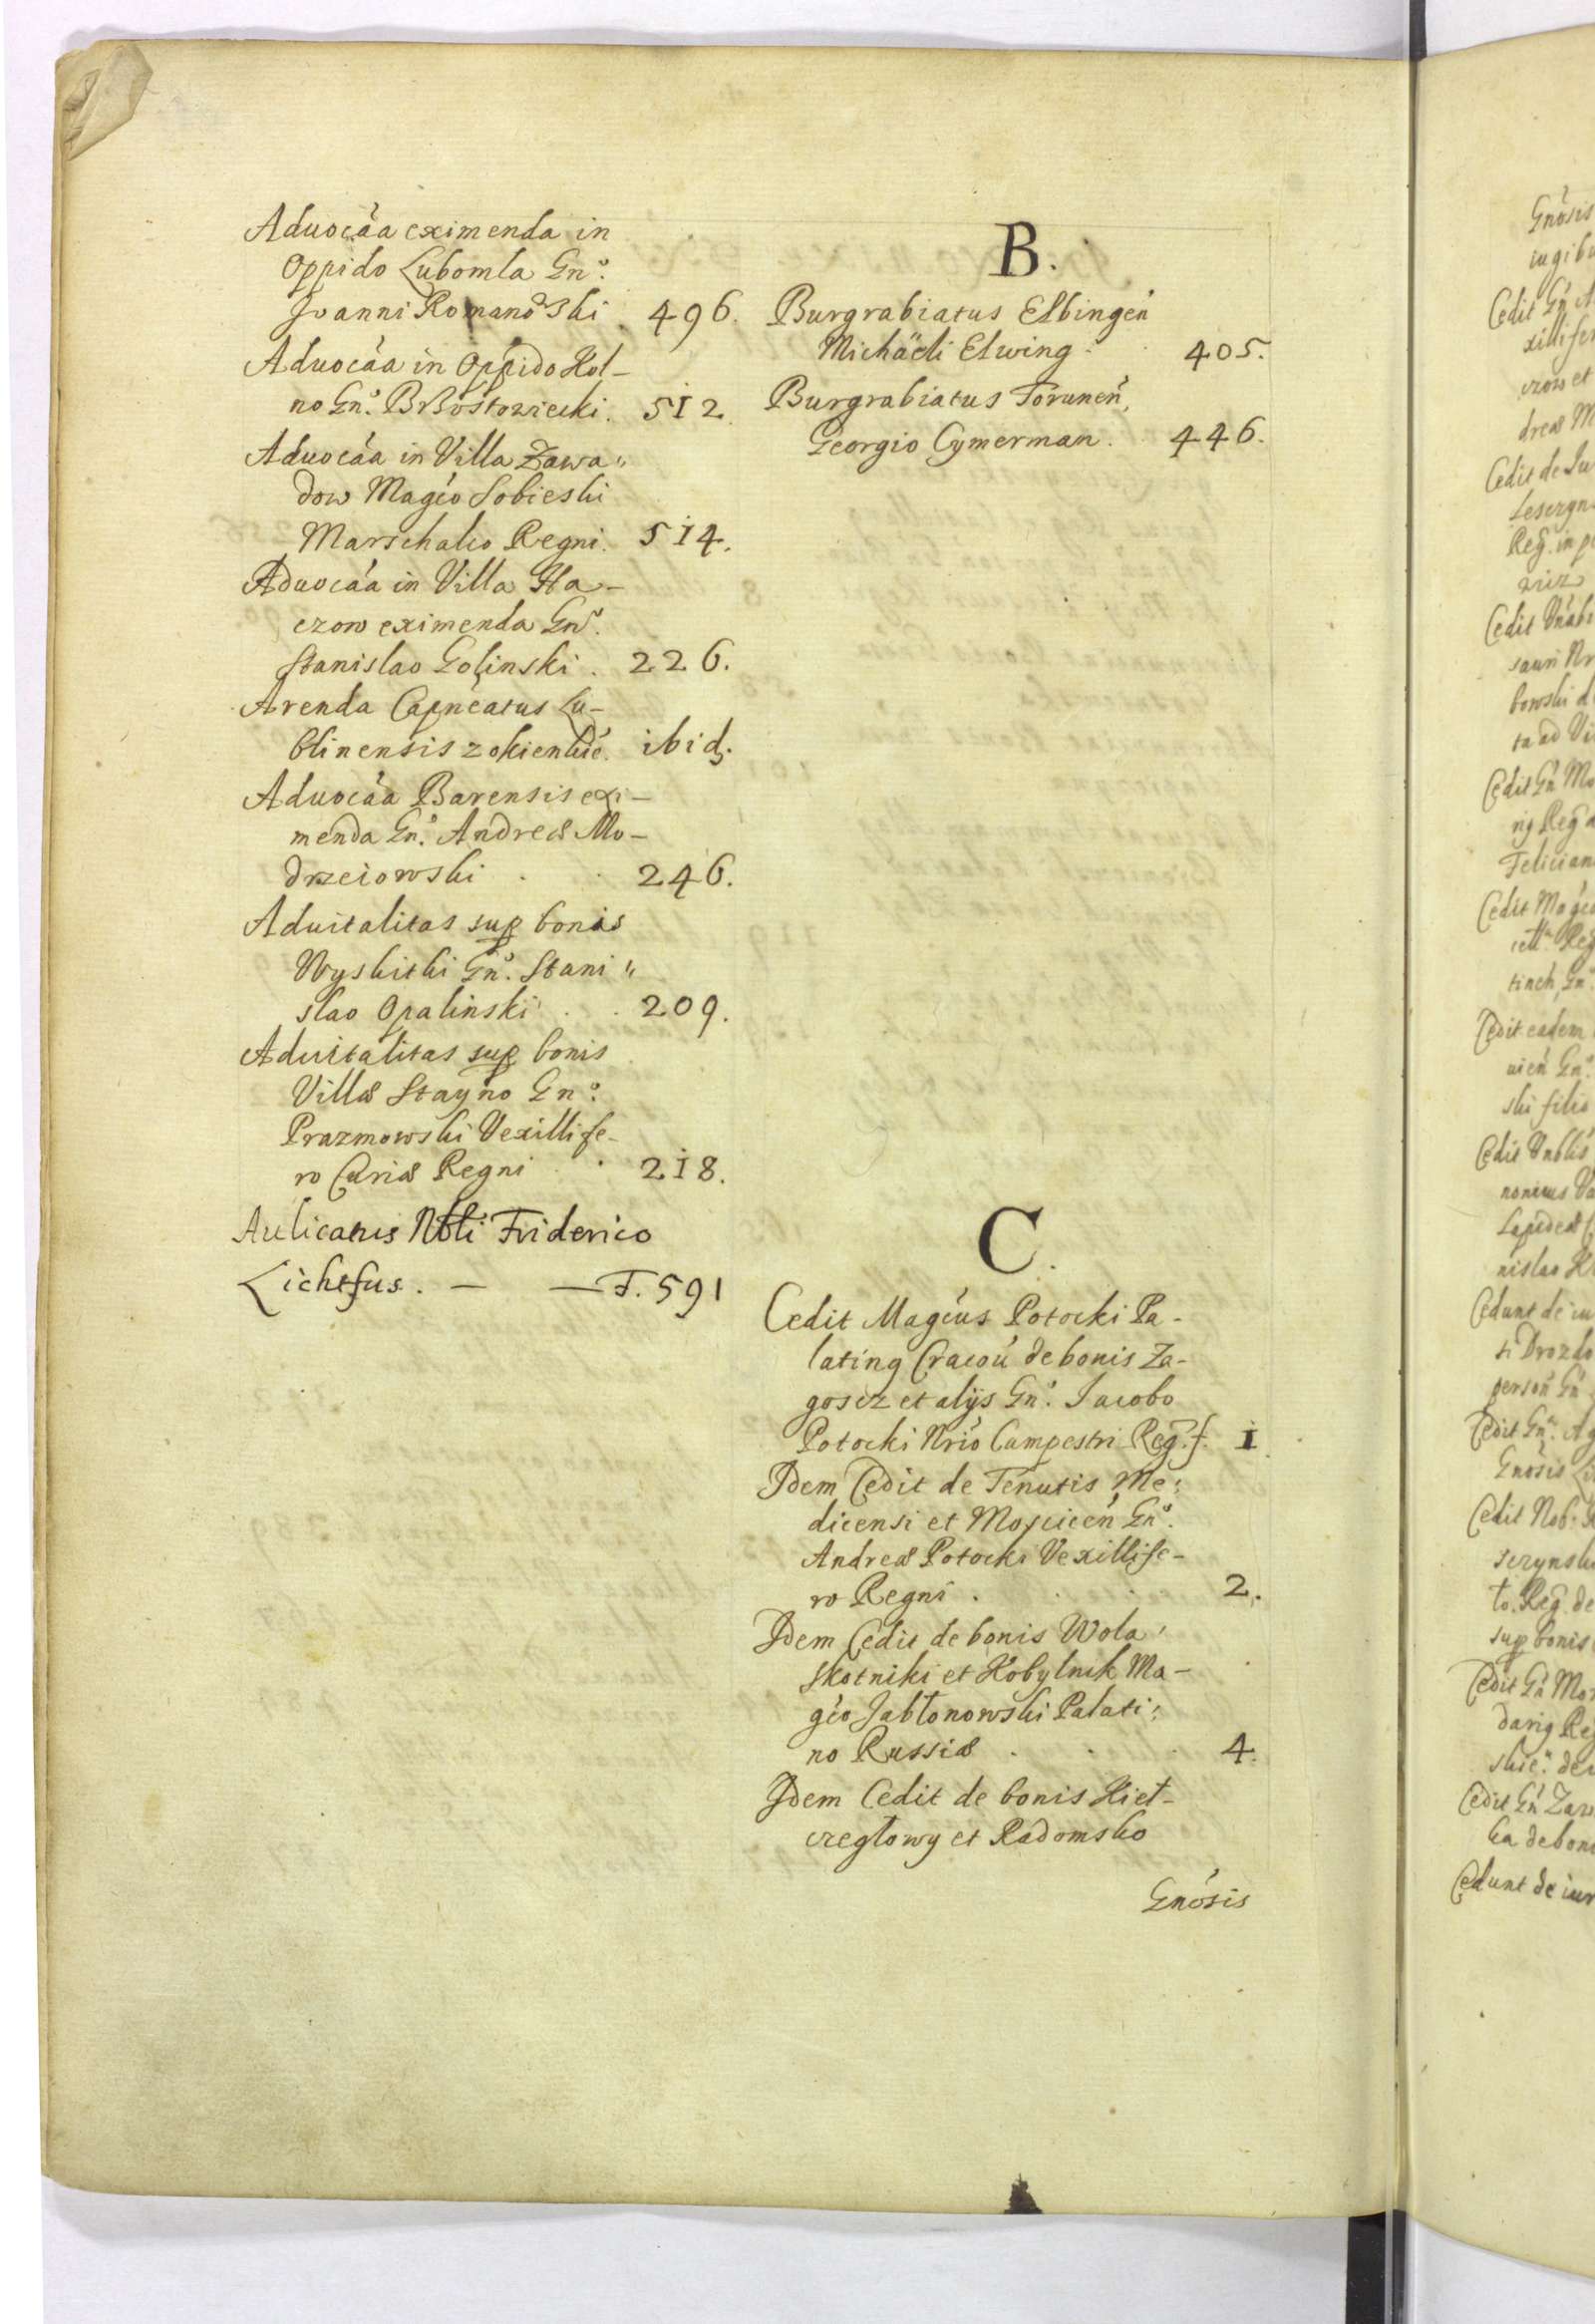 Aduocãa eximenda in
Oppido Lubomla Gn°:
Joanni Romanowski 496.
Aduocãa in Oppido Kol-
no Gn°: Brzostowiecki. 512
Aduocãa in Villa Zawa„
dow Magco Sobieski
Marschalco Regni. 514.
Aduocãa in Villa Ha-
czow eximenda Gn°.
Stanislao Golinski. 226.
Arenda Capneatus Lu-
blinensis z okienkie. ibid.
Aduocãa Barensis exi-
menda Gn°. Andreæ Mo-
drzeiowski . . 246.
Aduitalitas sup bonis
Wyskitki Gn°. Stani„
slao Opalinski . . 209.
Aduitalitas sup bonis
Villæ Stayno Gn°:
Prazmowski Vexillife-
ro Curiæ Regni . . 218.
Aulicatus Nbli Friderico
Lichtfus. — — F. 591
B.
Burgrabiatus Elbingeń
Michaëli Elwing. 405.
Burgrabiatus Toruneń,
Georgio Cymerman. 446.
C.
Cedit Magcus Potocki Pa-
lating Cracoú de bonis Za-
goscz et alijs Gn°. Jacobo
Potocki Nrio Campestri Reg. f. 1
Idem Cedit de Tenutis Me:
dicensi et Mosciceń Gn°.
Andreæ Potocki Vexillife-
ro Regni . . . 2.
Idem Cedit de bonis Wola,
Skotniki et Kobylnik Ma-
gco Jabłonowski Palati:
no Russiæ . . . 4.
Idem Cedit de bonis Kieł-
czegłowy et Radomsko
Gnosis
Gnosis
iugibu
Cedit Gn A
xillifer
czow et
dreæ M
Cedit de Iu
Lesczyn
Reg. in p
Cedit
sauri Nr
bowski d
ta ad Vi
Cedit Gn Mo
rig Reg d
Felician
Cedit Magco
Reg
tinch, Gn
Cedit eadem
uień Gn°.
ski filio
Cedit Vnblis
nonicus Va
Lapideæ C
nislao K
Cedunt de iu
ti Drozdo
person Gn
Cedit Gn. Ag
Gnosis
Cedit Nob:
sczynsk
to. Reg. de
sup bonis
Cedit Gn Mo
darig Reg
skie. de
Cedit Gn Zar
ka de bon
Cedunt de iur